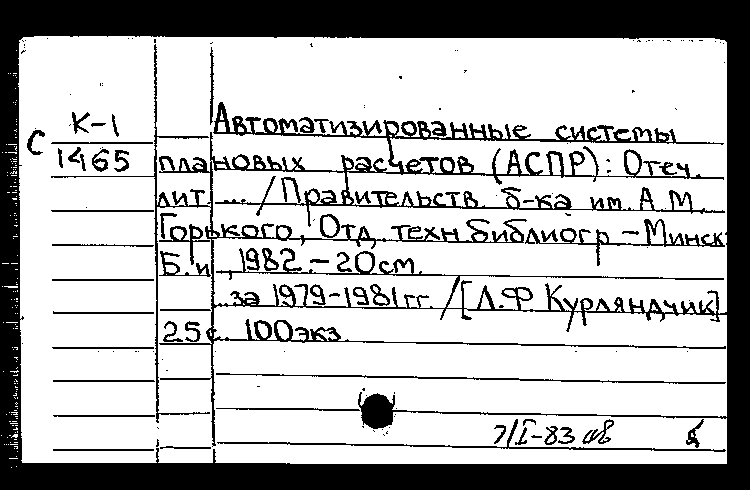 К-1
С
Автоматизированные системы
1465 плановых расчетов (АСПР): Отеч.
лит. ... / Правительств. б-ка им. А.М.
Горького, Отд. техн. библиогр – Минск:
Б.и., 1982. – 20 см.
...за 1979-1981 гг. / [Л.Ф Курляндчик]
25 с. 100 экз.
7/I-83